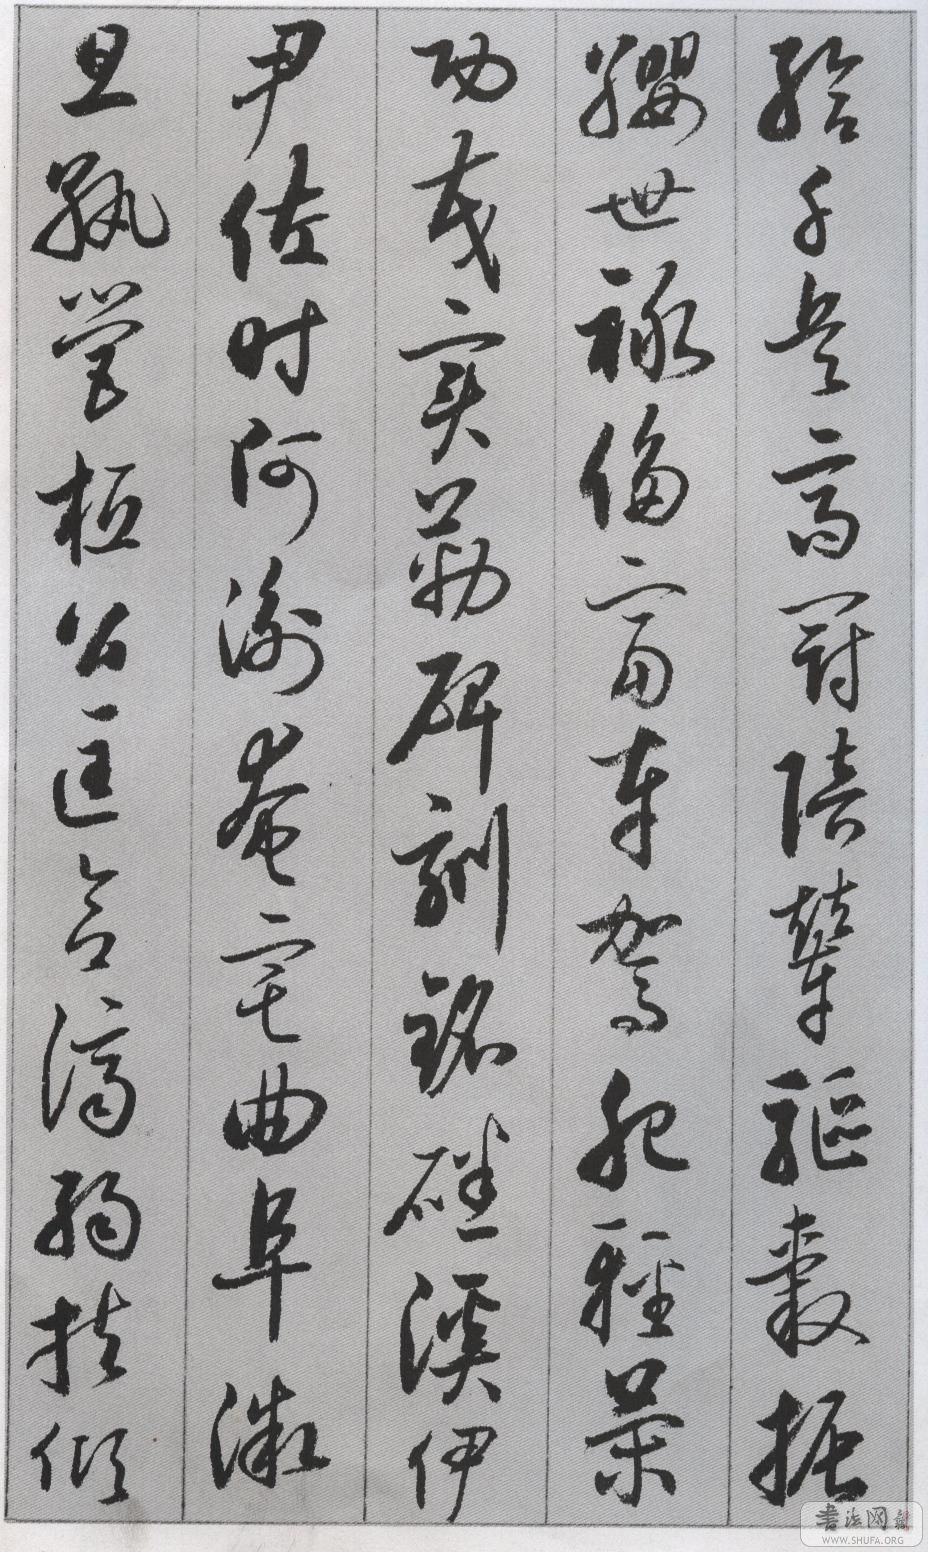 給千兵高冠陪輦驅轂振
纓世祿侈富車駕肥輕策
功茂實勒碑刻銘磻溪伊
尹佐時阿衡奄宅曲阜微
旦孰營桓公匡合濟弱扶傾
書法网
WWW.SHUFA.ORG